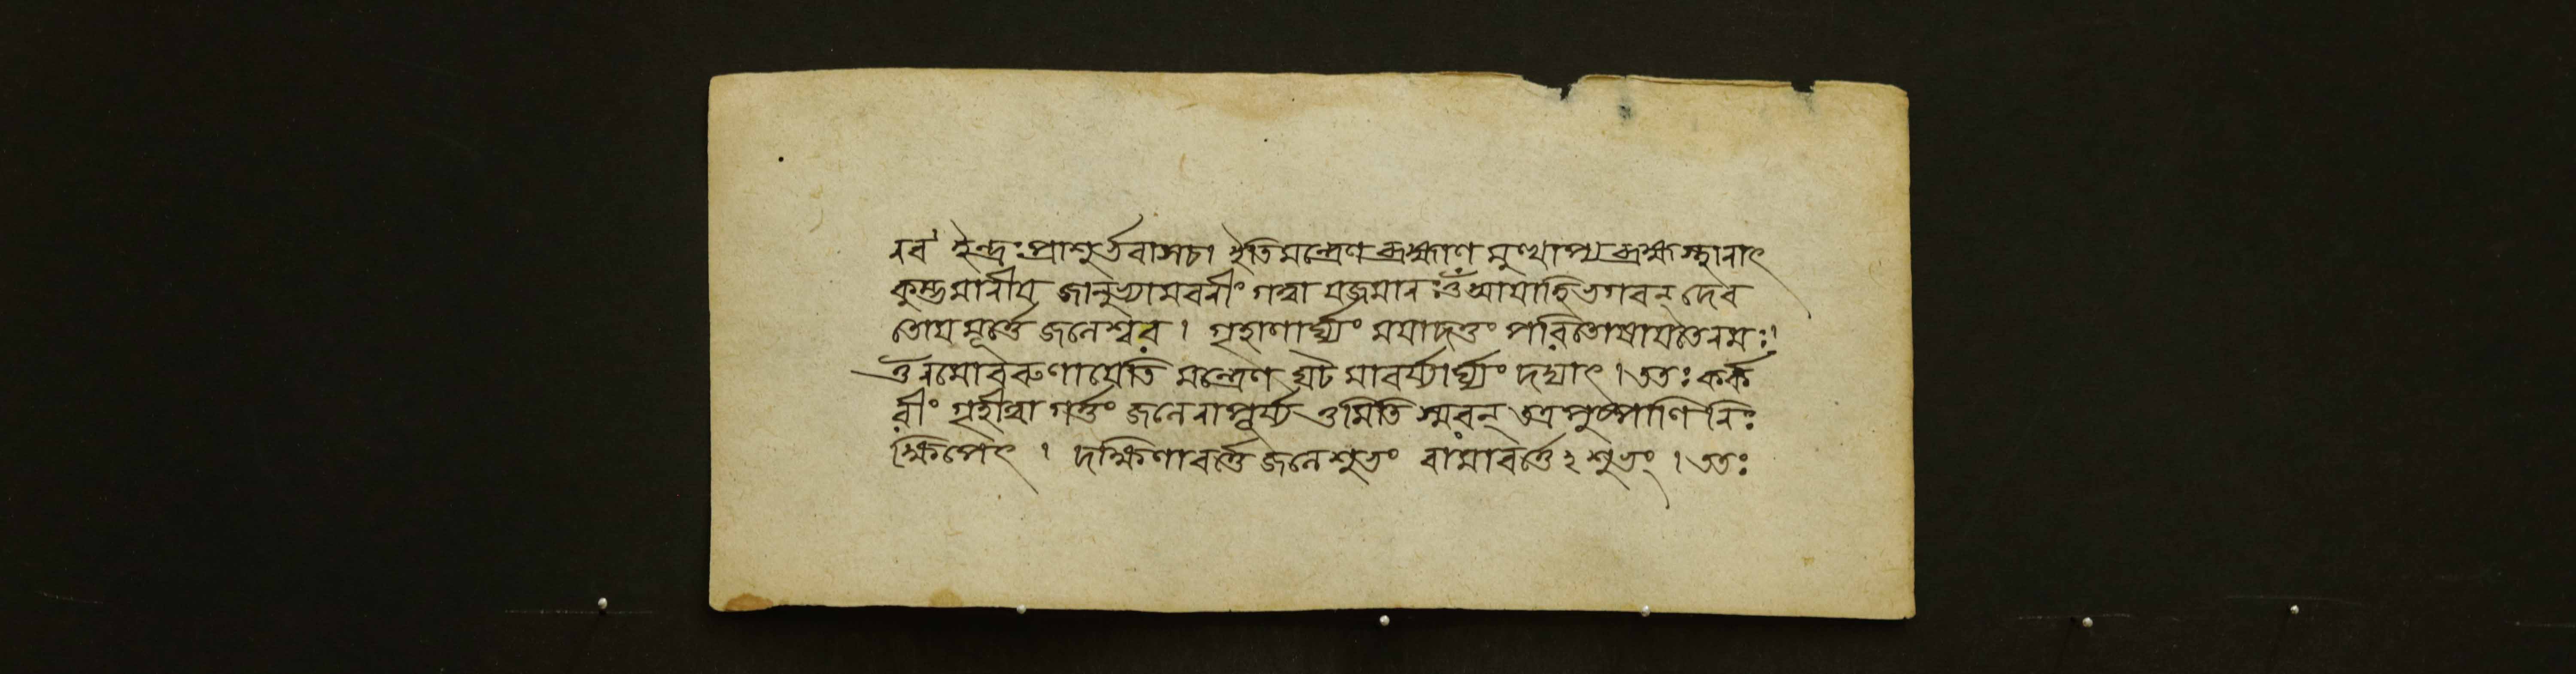 নব ইন্দ্রঃ প্রাশুর্ভবাসচা ইতি মন্ত্রেণ ব্রহ্মাণমুত্থাপ্য ব্রহ্মস্থানাৎ
কুম্ভমানীয় জানুভ্যামবনীং গত্বা যজমানঃ ওঁ আয়াহি ভগবন্ দেব
তোয়মূর্ত্তে জলেশ্বর । গৃহাণার্ঘ্যং ময়াদত্তং পরিতোষায় তে নমঃ ।
ওঁ নমো বরুণায়েতি মন্ত্রেণ ঘটমাবর্য্যার্ঘ্যং দদ্যাৎ । ততঃ কর্ক
রীং গৃহীত্বা গর্ত্তং জলেনাপূর্য্য ওমিতি স্মরন্ তত্র পুষ্পাণি নিঃ
ক্ষিপেৎ । দক্ষিণাবর্ত্তে জলে শুভং বামাবর্ত্তেঽশুভং । ততঃ